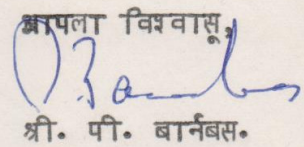 आपला विश्वासू,
श्री. पी. बार्नबस.